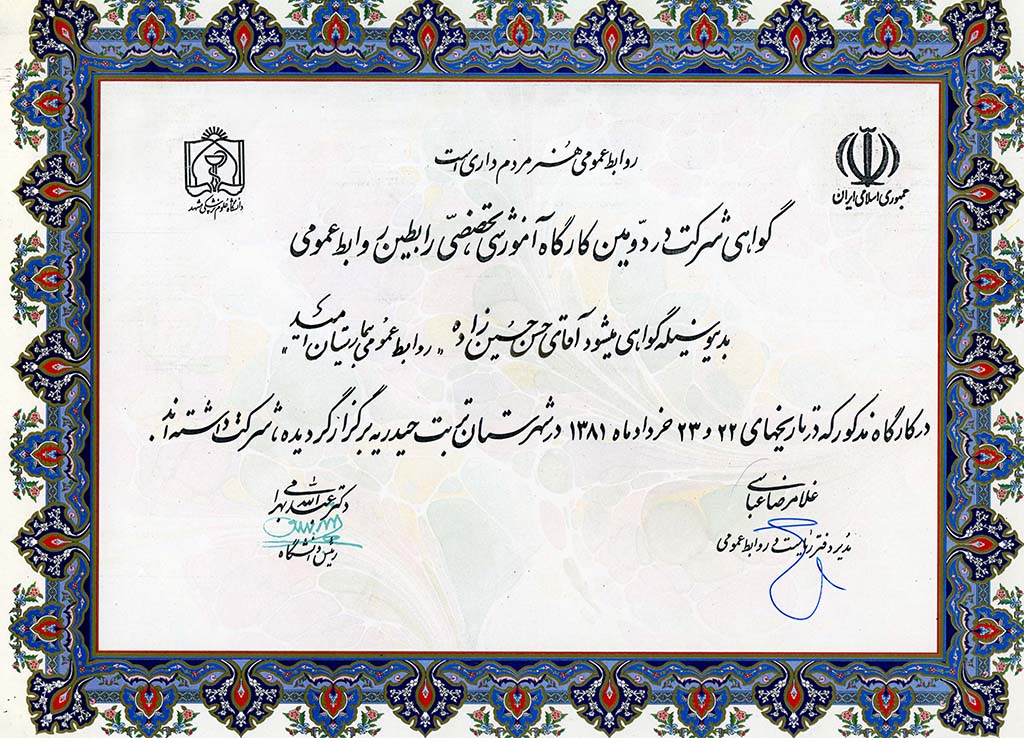 روابط عمومی هنر مردم داری است
جمهوری اسلامی ایران
دانشگاه علوم پزشکی مشهد
گواهی شرکت در دوّمین کارگاه آموزشی تخصّصی رابطین روابط عمومی
بدینوسیله گواهی میشود آقای حسن حسین زاده «روابط عمومی بیمارستان امید»
در کارگاه مذکور که در تاریخهای ۲۲ و ۲۳ خرداد ماه ۱۳۸۱ در شهرستان تربت حیدریه برگزار گردیده، شرکت داشته اند.
غلامرضا عباسی
مدیر دفتر ریاست و روابط عمومی
دکتر عبدالله بهرامی
رئیس دانشگاه